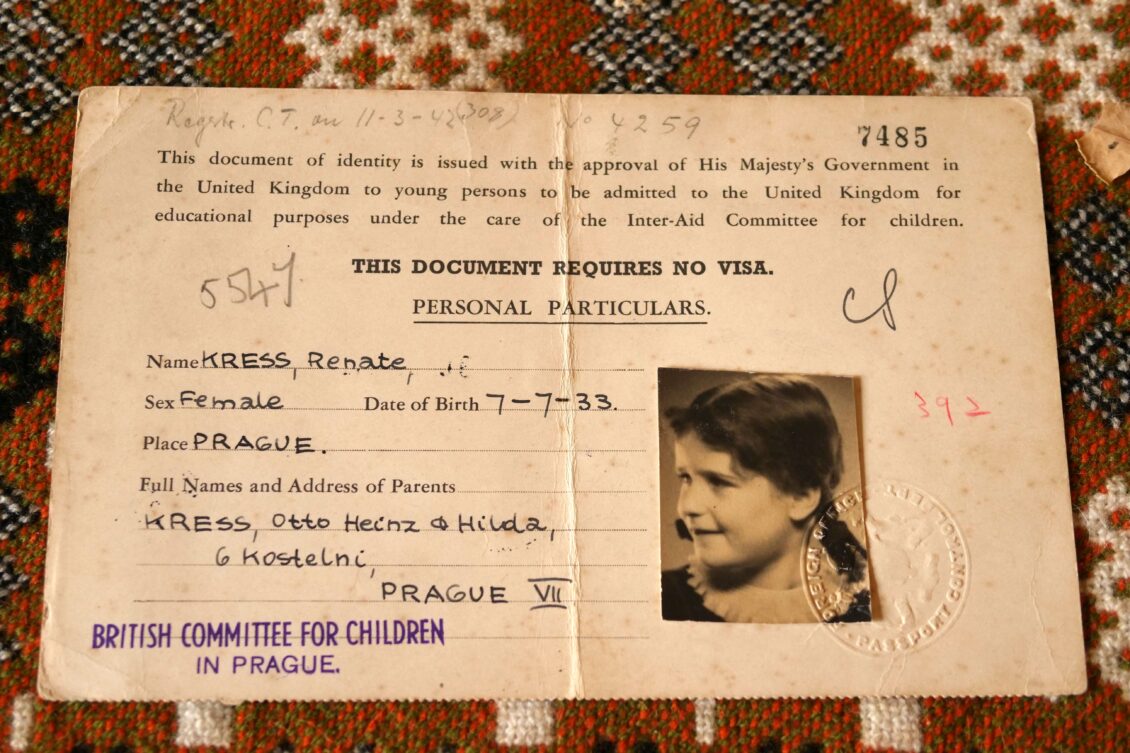 Registr. C.T. on 11-3-42 (308) No 4259
7485
This document of identity is issued with the approval of His Majesty's Government in
the United Kingdom to young persons to be admitted to the United Kingdom for
educational purposes under the care of the Inter-Aid Committee for children.
THIS DOCUMENT REQUIRES NO VISA.
5547
PERSONAL PARTICULARS.
Name KRESS, Renate,
Sex Female Date of Birth 7-7-33.
392
Place PRAGUE.
Full Names and Address of Parents
KRESS, Otto Heinz & Hilda,
6 Kostelni,
PRAGUE VII
BRITISH COMMITTEE FOR CHILDREN
IN PRAGUE.
FOREIGN OFFICE
PASSPORT CONTROL DEPT